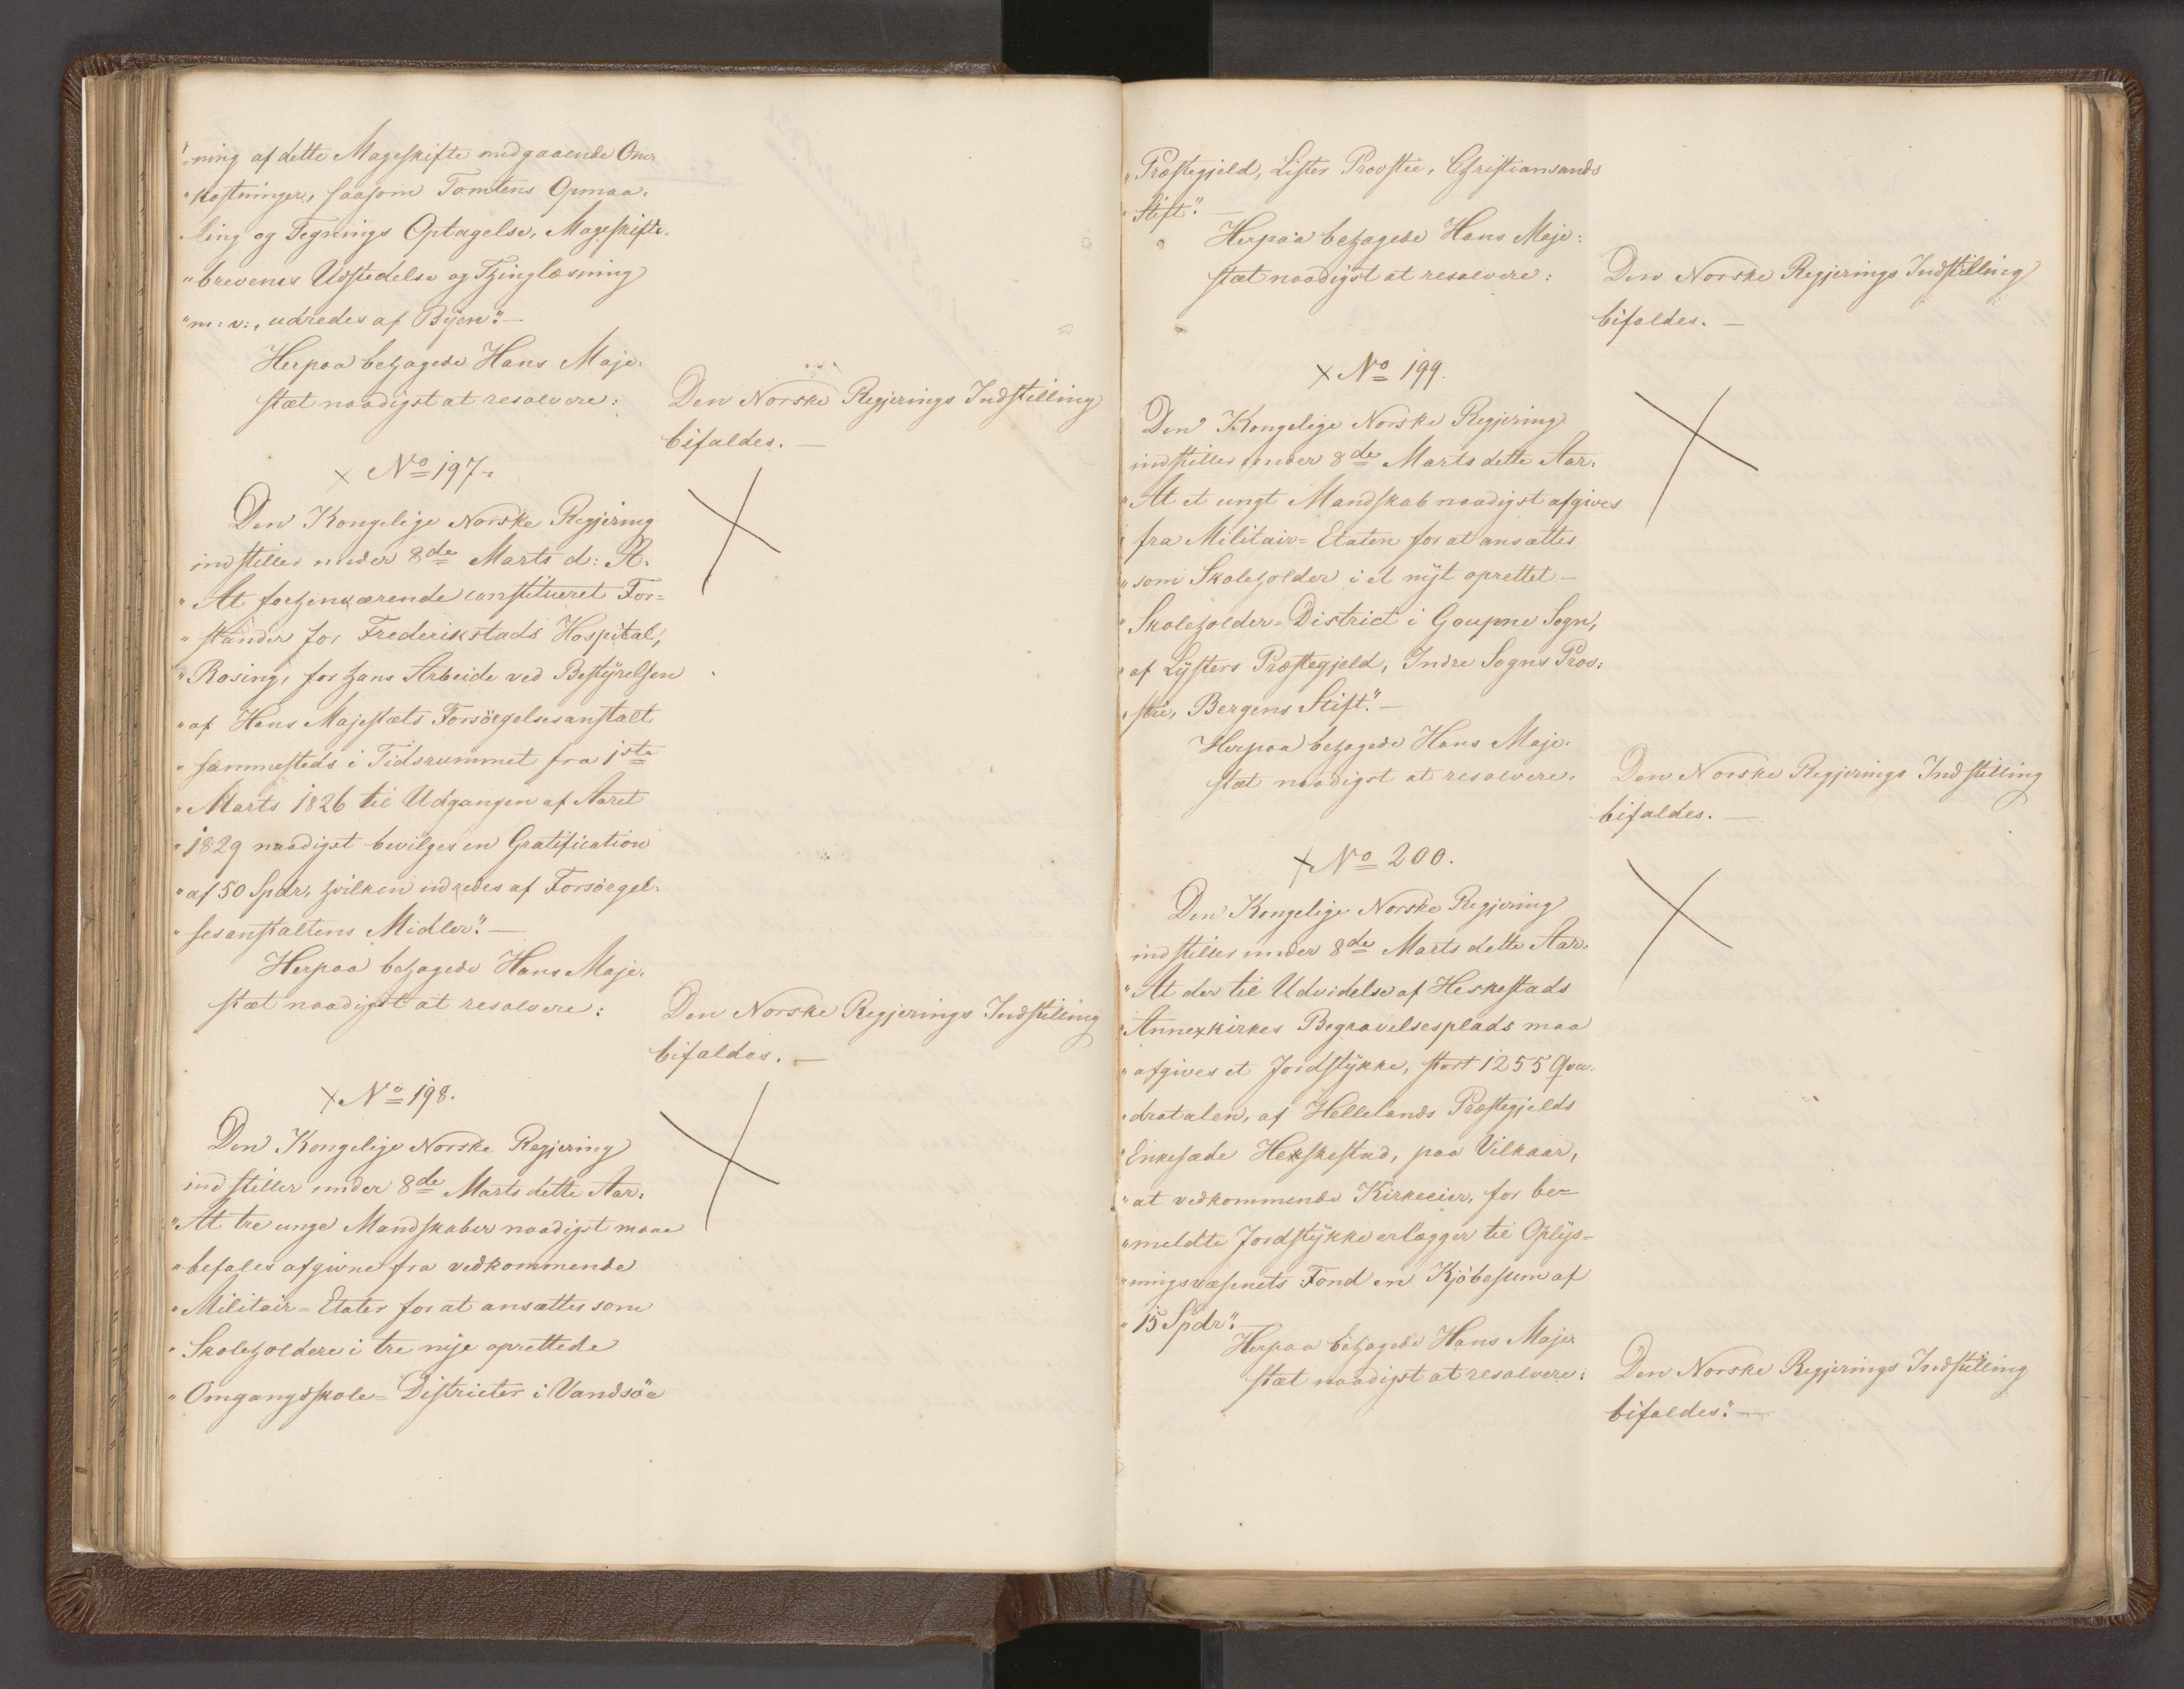 "ning af dette Mageskifte medgaaende Om-
"kostninger, saasom Tomtens Opmaa-
"ling og Tegnings Optagelse, Mageskifte-
"brevenes Udstedelse og Thinglæsning
"m: v:, udredes af Byen". —
Herpaa behagede Hans Maje-
stæt naadigst at resolvere:
Den Norske Regjerings Indstilling
bifaldes. —
× No 197.
Den Kongelige Norske Regjering
indstiller under 8de Marts d: A.
"At forhenværende constitueret For-
"stander for Frederikstads Hospital,
"Rosing, for hans Arbeide ved Bestyrelsen
"af Hans Majestæts Forsörgelsesanstalt
"sammesteds i Tidsrummet fra 1ste
"Marts 1826 til Udgangen af Aaret
"1829 naadigst bevilges en Gratification
"af 50 Spdr, hvilken udredes af Forsörgel-
"sesanstaltens Midler". —
Herpaa behagede Hans Maje-
stæt naadigst at resolvere:
Den Norske Regjerings Indstilling
bifaldes. —
× No 198.
Den Kongelige Norske Regjering
indstiller under 8de Marts dette Aar.
"At tre unge Mandskaber naadigst maae
"befales afgivne fra vedkommende
"Militair-Etater for at ansættes som
"Skoleholdere i tre nye oprettede
"Omgangsskole-Districter i Vandsöe
"Præstegjeld, Lister Provstie, Christiansands
"Stift". —
Herpaa behagede Hans Maje-
stæt naadigst at resolvere:
Den Norske Regjerings Indstilling
bifaldes. —
× No 199.
Den Kongelige Norske Regjering
indstiller under 8de Marts dette Aar.
"At et ungt Mandskab naadigst afgives
"fra Militair-Etaten for at ansættes
"som Skoleholder i et nyt oprettet
"Skoleholder-District i Goupne Sogn,
"af Lysters Præstegjeld, Indre Sogns Prov-
"stie, Bergens Stift". —
Herpaa behagede Hans Maje-
stæt naadigst at resolvere:
Den Norske Regjerings Indstilling
bifaldes. —
× No 200.
Den Kongelige Norske Regjering
indstiller under 8de Marts dette Aar.
"At der til Udvidelse af Heskestads
"Annexkirkes Begravelsesplads maa
"afgives et Jordstykke, stort 1255 Qva-
"dratalen, af Hellelands Præstegjelds
"Enkesæde Heskestad, paa Vilkaar,
"at vedkommende Kirkeeier, for be-
"meldte Jordstykke erlægger til Oplys-
"ningsvæsenets Fond en Kjöbesum af
"15 Spdr".
Herpaa behagede Hans Maje-
stæt naadigst at resolvere:
Den Norske Regjerings Indstilling
bifaldes". —